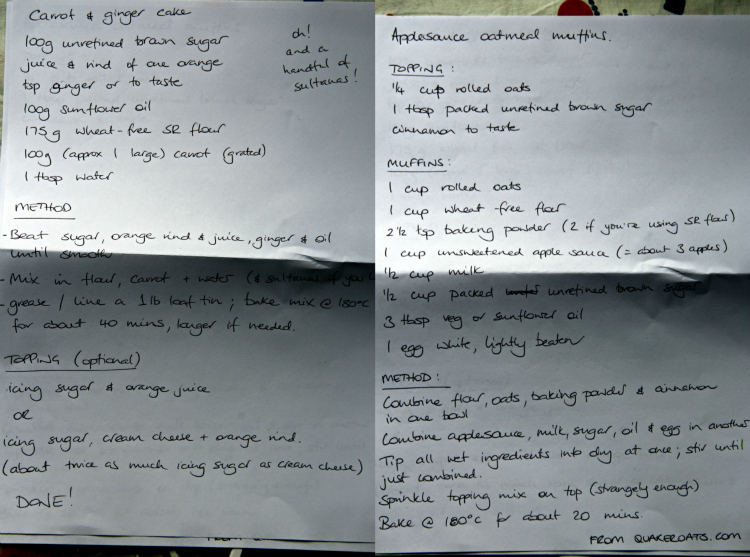 Carrot & ginger cake
100g unrefined brown sugar
juice & rind of one orange
tsp ginger or to taste
100g sunflower oil
175g wheat-free SR flour
100g (approx 1 large) carrot (grated)
1 tbsp water
oh!
and a
handful of
sultanas!
METHOD
- Beat sugar, orange rind & juice, ginger & oil
until smooth
- Mix in flour, carrot + water (& sultanas if you
- grease / line a 1lb loaf tin; bake mix @ 180°C
for about 40 mins, longer if needed.
TOPPING (optional)
icing sugar & orange juice
OR
icing sugar, cream cheese + orange rind.
(about twice as much icing sugar as cream cheese)
DONE!
Applesauce oatmeal muffins.
TOPPING:
1/4 cup rolled oats
1 tbsp packed unrefined brown sugar
cinnamon to taste
MUFFINS:
1 cup rolled oats
1 cup wheat-free flour
2 1/2 tsp baking powder (2 if you're using SR flour)
1 cup unsweetened apple sauce (= about 3 apples)
1/2 cup milk
1/2 cup packed unrefined brown sugar
3 tbsp veg or sunflower oil
1 egg white, lightly beaten
METHOD:
Combine flour, oats, baking powder & cinnamon
in one bowl
Combine applesauce, milk, sugar, oil & egg in another
Tip all wet ingredients into dry at once; stir until
just combined.
Sprinkle topping mix on top (strangely enough)
Bake @ 180°C for about 20 mins.
FROM QUAKEROATS.COM